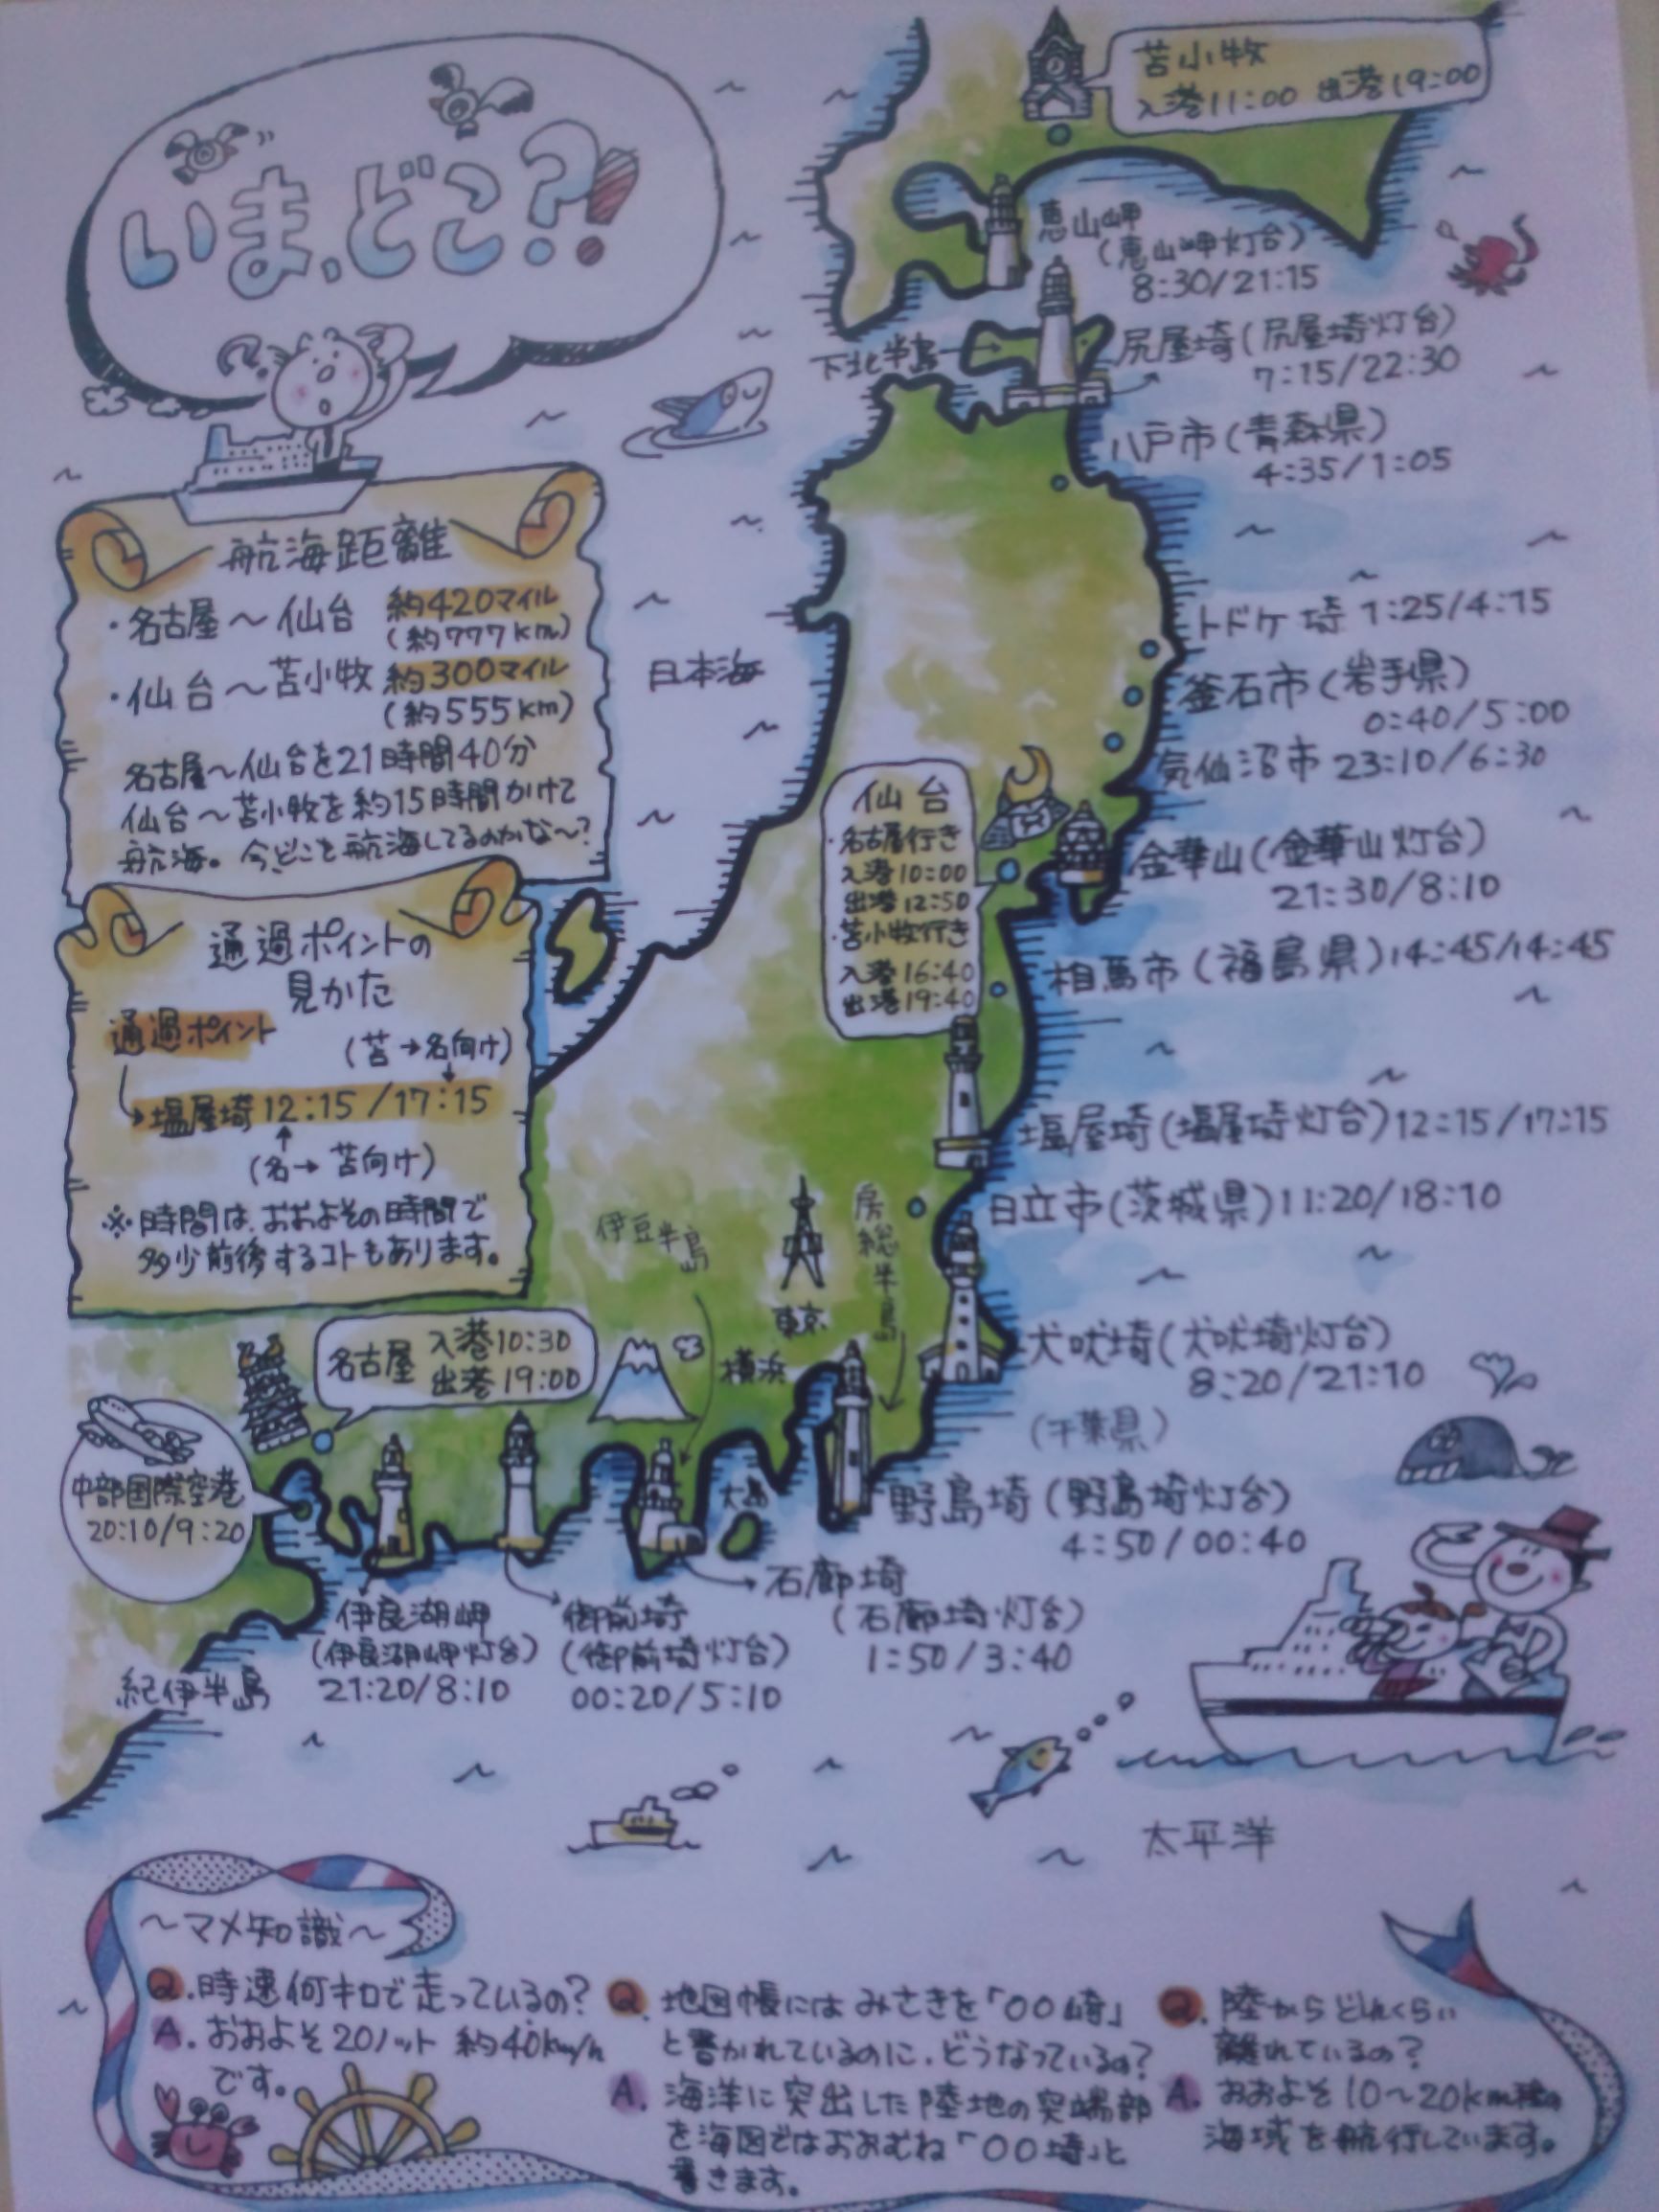 いま、どこ?!
苫小牧
入港11:00 出港19:00
恵山岬
(恵山岬灯台)
8:30/21:15
下北半島
尻屋埼(尻屋埼灯台)
7:15/22:30
八戸市(青森県)
4:35/1:05
トドケ埼 1:25/4:15
釜石市(岩手県)
0:40/5:00
気仙沼市 23:10/6:30
金華山(金華山灯台)
21:30/8:10
相馬市(福島県)14:45/14:45
塩屋埼(塩屋埼灯台)12:15/17:15
日立市(茨城県)11:20/18:10
犬吠埼(犬吠埼灯台)
8:20/21:10
(千葉県)
野島埼(野島埼灯台)
4:50/00:40
石廊埼
(石廊埼灯台)
1:50/3:40
御前埼
(御前埼灯台)
00:20/5:10
伊良湖岬
(伊良湖岬灯台)
21:20/8:10
紀伊半島
中部国際空港
20:10/9:20
名古屋 入港10:30
出港19:00
伊豆半島
東京
房総半島
横浜
大島
仙台
・名古屋行き
入港10:00
出港12:50
・苫小牧行き
入港16:40
出港19:40
日本海
航海距離
・名古屋〜仙台 約420マイル
(約777km)
・仙台〜苫小牧 約300マイル
(約555km)
名古屋〜仙台を21時間40分
仙台〜苫小牧を約15時間かけて
航海。今どこを航海してるのかな〜?
通過ポイントの
見かた
通過ポイント
(苫→名向け)
塩屋埼 12:15/17:15
(名→苫向け)
※時間は、おおよその時間で
多少前後するコトもあります。
太平洋
〜マメ知識〜
Q.時速何キロで走っているの?
A.おおよそ20ノット 約40km/h
です。
Q.地図帳にはみさきを「〇〇崎」
と書かれているのに、どうなっているの?
A.海洋に突出した陸地の突端部
を海図ではおおむね「〇〇埼」と
書きます。
Q.陸からどれくらい
離れているの?
A.おおよそ10〜20km程の
海域を航行しています。